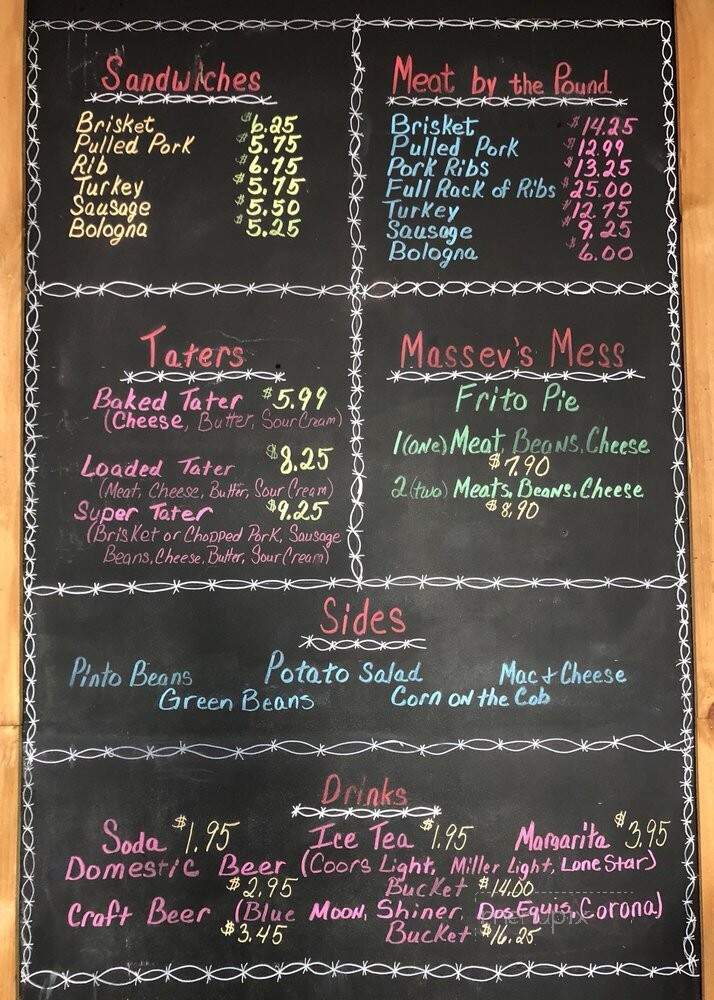 Sandwiches
Brisket $6.25
Pulled Pork $5.75
Rib $6.75
Turkey $5.75
Sausage $5.50
Bologna $5.25
Meat by the Pound
Brisket $14.25
Pulled Pork $12.99
Pork Ribs $13.25
Full Rack of Ribs $25.00
Turkey $12.75
Sausage $9.25
Bologna $6.00
Taters
Baked Tater $5.99
(Cheese, Butter, Sour Cream)
Loaded Tater $8.25
(Meat, Cheese, Butter, Sour Cream)
Super Tater $9.25
(Brisket or Chopped Pork, Sausage
Beans, Cheese, Butter, Sour Cream)
Massey's Mess
Frito Pie
1 (one) Meat, Beans, Cheese
$7.90
2 (two) Meats, Beans, Cheese
$8.90
Sides
Pinto Beans Potato Salad Mac + Cheese
Green Beans Corn on the Cob
Drinks
Soda $1.95 Ice Tea $1.95 Margarita $3.95
Domestic Beer (Coors Light, Miller Light, Lone Star)
$2.95 Bucket $14.00
Craft Beer (Blue Moon, Shiner, Dos Equis, Corona)
$3.45 Bucket $16.25